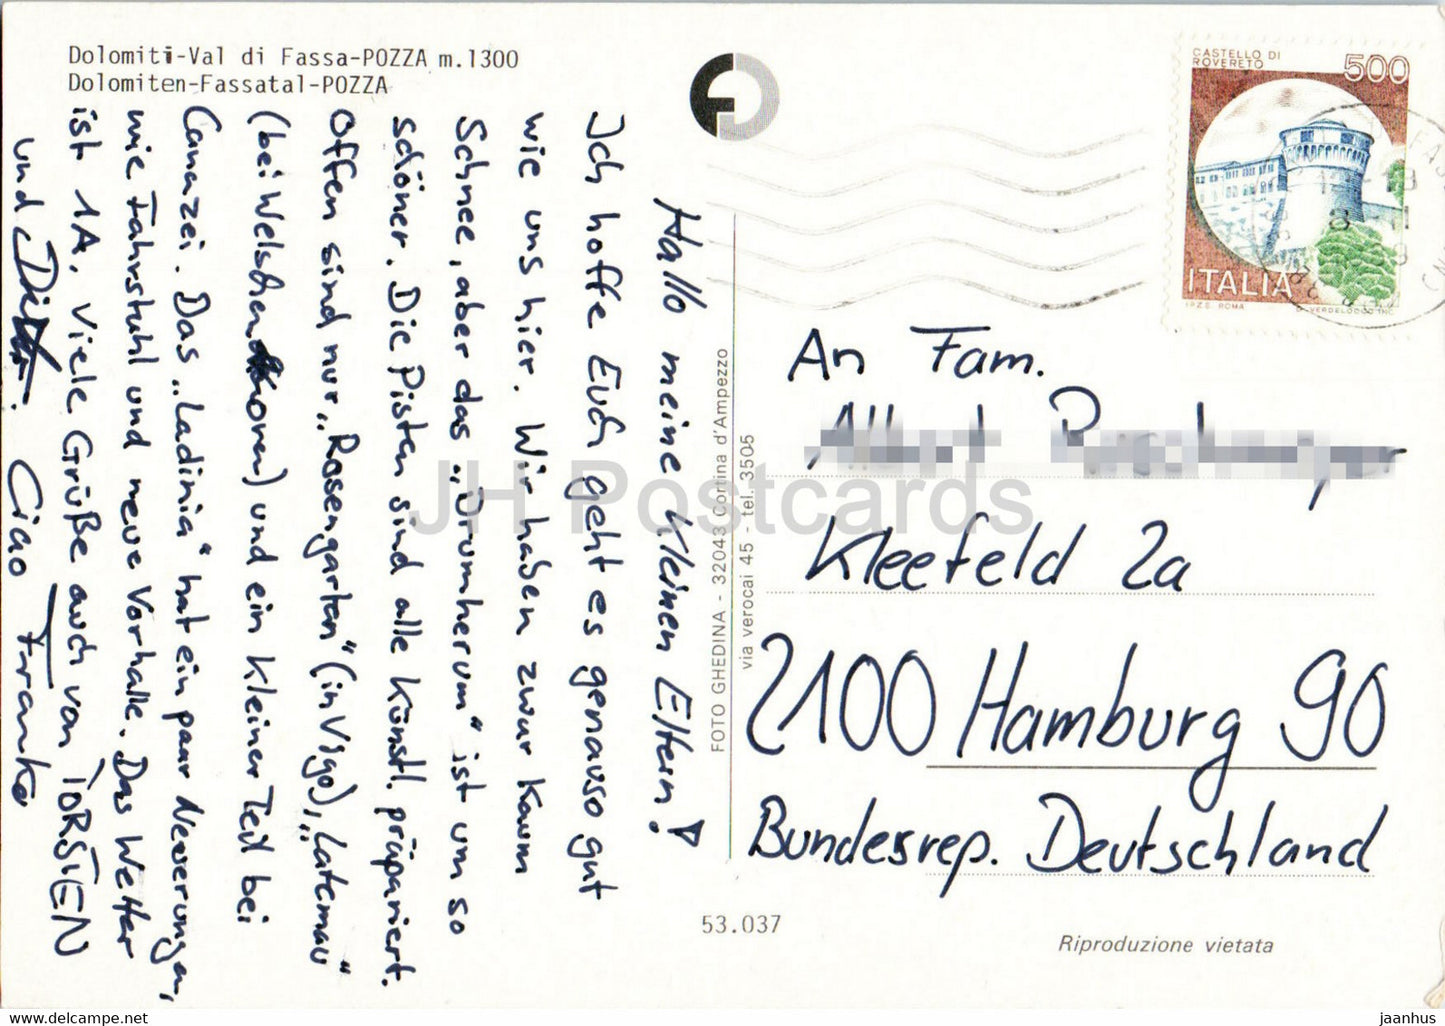 Dolomiti-Val di Fassa-POZZA m.1300
Dolomiten-Fassatal-POZZA
Hallo meine kleinen Eltern!
Ich hoffe Euch geht es genauso gut
wie uns hier. Wir haben zwar kaum
Schnee, aber das „Drumherum“ ist um so
schöner. Die Pisten sind alle künstl. präpariert.
Offen sind nur „Rosengarten“ (in Vigo), „Latemau“
(bei Welschen) und ein kleiner Teil bei
Canazei. Das „Ladinia“ hat ein paar Neuerungen,
wie Fahrstuhl und neue Vorhalle. Das Wetter
ist 1A. Viele Grüße auch von TORSTEN
und Ciao Franke
CASTELLO DI
ROVERETO
500
ITALIA
I.P.Z.S. ROMA
An Fam.
Kleefeld 2a
2100 Hamburg 90
Bundesrep. Deutschland
FOTO GHEDINA - 32043 Cortina d'Ampezzo
via verocai 45 - tel. 3505
53.037
Riproduzione vietata
JH Postcards
jaanhus
https://www.ebay.com/usr/jaanhus